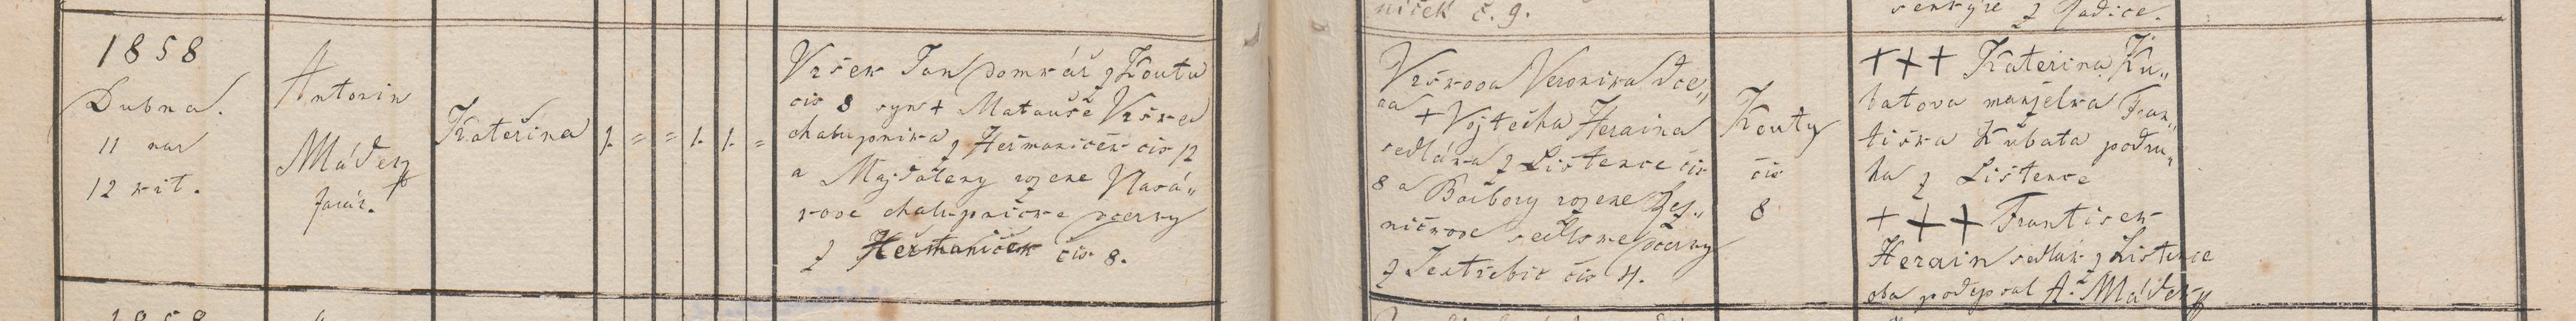 niček č. 9.
z Radíce.
1858
Dubna.
11 nar
12 křt.
Antonin
Máderý
farář.
Kateřina
1. = = 1. 1. =
Vršek Jan Domkář z Koutů
čis 8 syn + Matouše Vrška
chalupnika z Heřmaniček čis 12
a Majdaleny rozene Nová„
kove chalupnicke dcerky
z Heřmaniček čis 8.
Vrškova Veronika Dce„
ra + Vojtěcha Heraina
sedláka z Lištence čis
8 a Barbory rozene
ničkove sedlske dcerky
z Jestřebic čis 4.
Kouty
čis
8
+++ Kateřina Ku„
batova manželka Fran„
tiska Kubata podru„
ha z Lištence
+++ Frantisek
Herain sedlák z Lištence
oba podepsal A. Mádery
1858